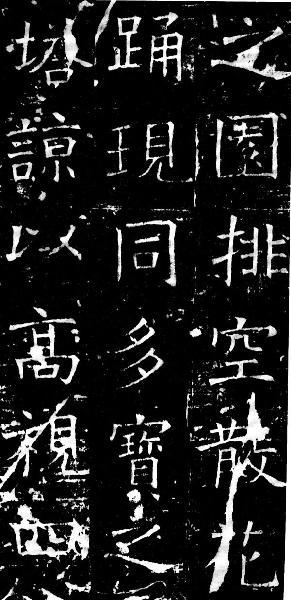 之園排空散花
踊現同多寶之
塔諒以高視四